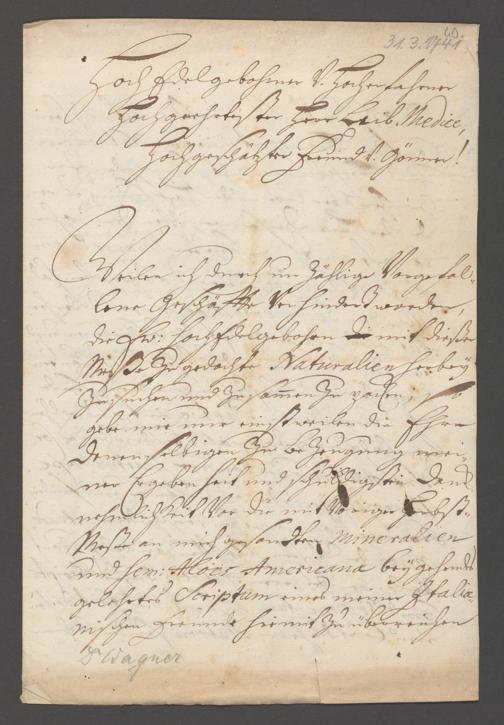 40
31. 3. 1741
Hoch Edelgebohrner V. Hocherfahrner
Hochgeehrtester Herr Leib. Medice,
Hochgeschätzter Freund V. Gönner!
Weilen ich durch unzählige Vorgefal-
lene Geschäffte verhindert worden,
die Ew: HochEdelgebohren mit dießer
Meße zu gedachte Naturalien herbey
zu suchen und zusamen zu packen, so
gebe mir nur einstweilen die Ehre
Denenselbigen zu bezeugung mei-
ner Ergebenheit und schuldigsten Danck
nehmlichkeit vor die mit voriger Herbst-
Meße an mich gesandten Mineralien
und Sem: Aloes Americana beygehendes
gelehrtes Scriptum eines meiner Italiä-
nischen Freunde hiermit zu überreichen
Dr Wagner